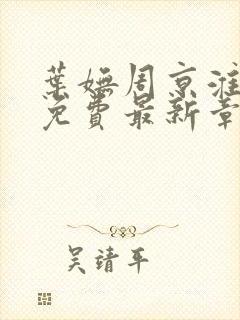 葉嫵周京淮
免費最新章
吴靖平